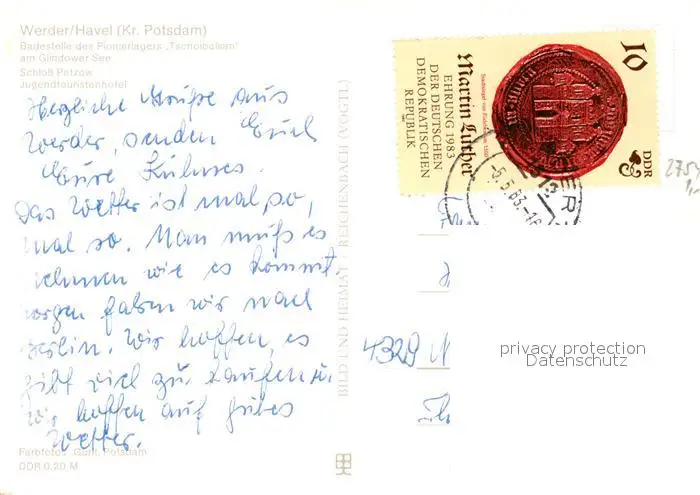 Werder/Havel (Kr. Potsdam)
Badestelle des Pionierlagers „Tschoibalsan“
am Glindower See
Schloß Petzow
Jugendtouristenhotel
Herzliche Grüße aus
Werder, senden Euch
Eure Kuhnes.
Das Wetter ist mal so,
mal so. Man muß es
nehmen wie es kommt
morgen fahren wir nach
Berlin. Wir hoffen, es
gibt viel zu kaufen u.
wir hoffen auf gutes
Wetter.
Farbfoto: Potsdam
DDR 0,20 M
BILD UND HEIMAT REICHENBACH (VOGTL)
10
DDR
Martin Luther
EHRUNG 1983
DER DEUTSCHEN
DEMOKRATISCHEN
REPUBLIK
-5.5.83-16
4329
privacy protection
Datenschutz